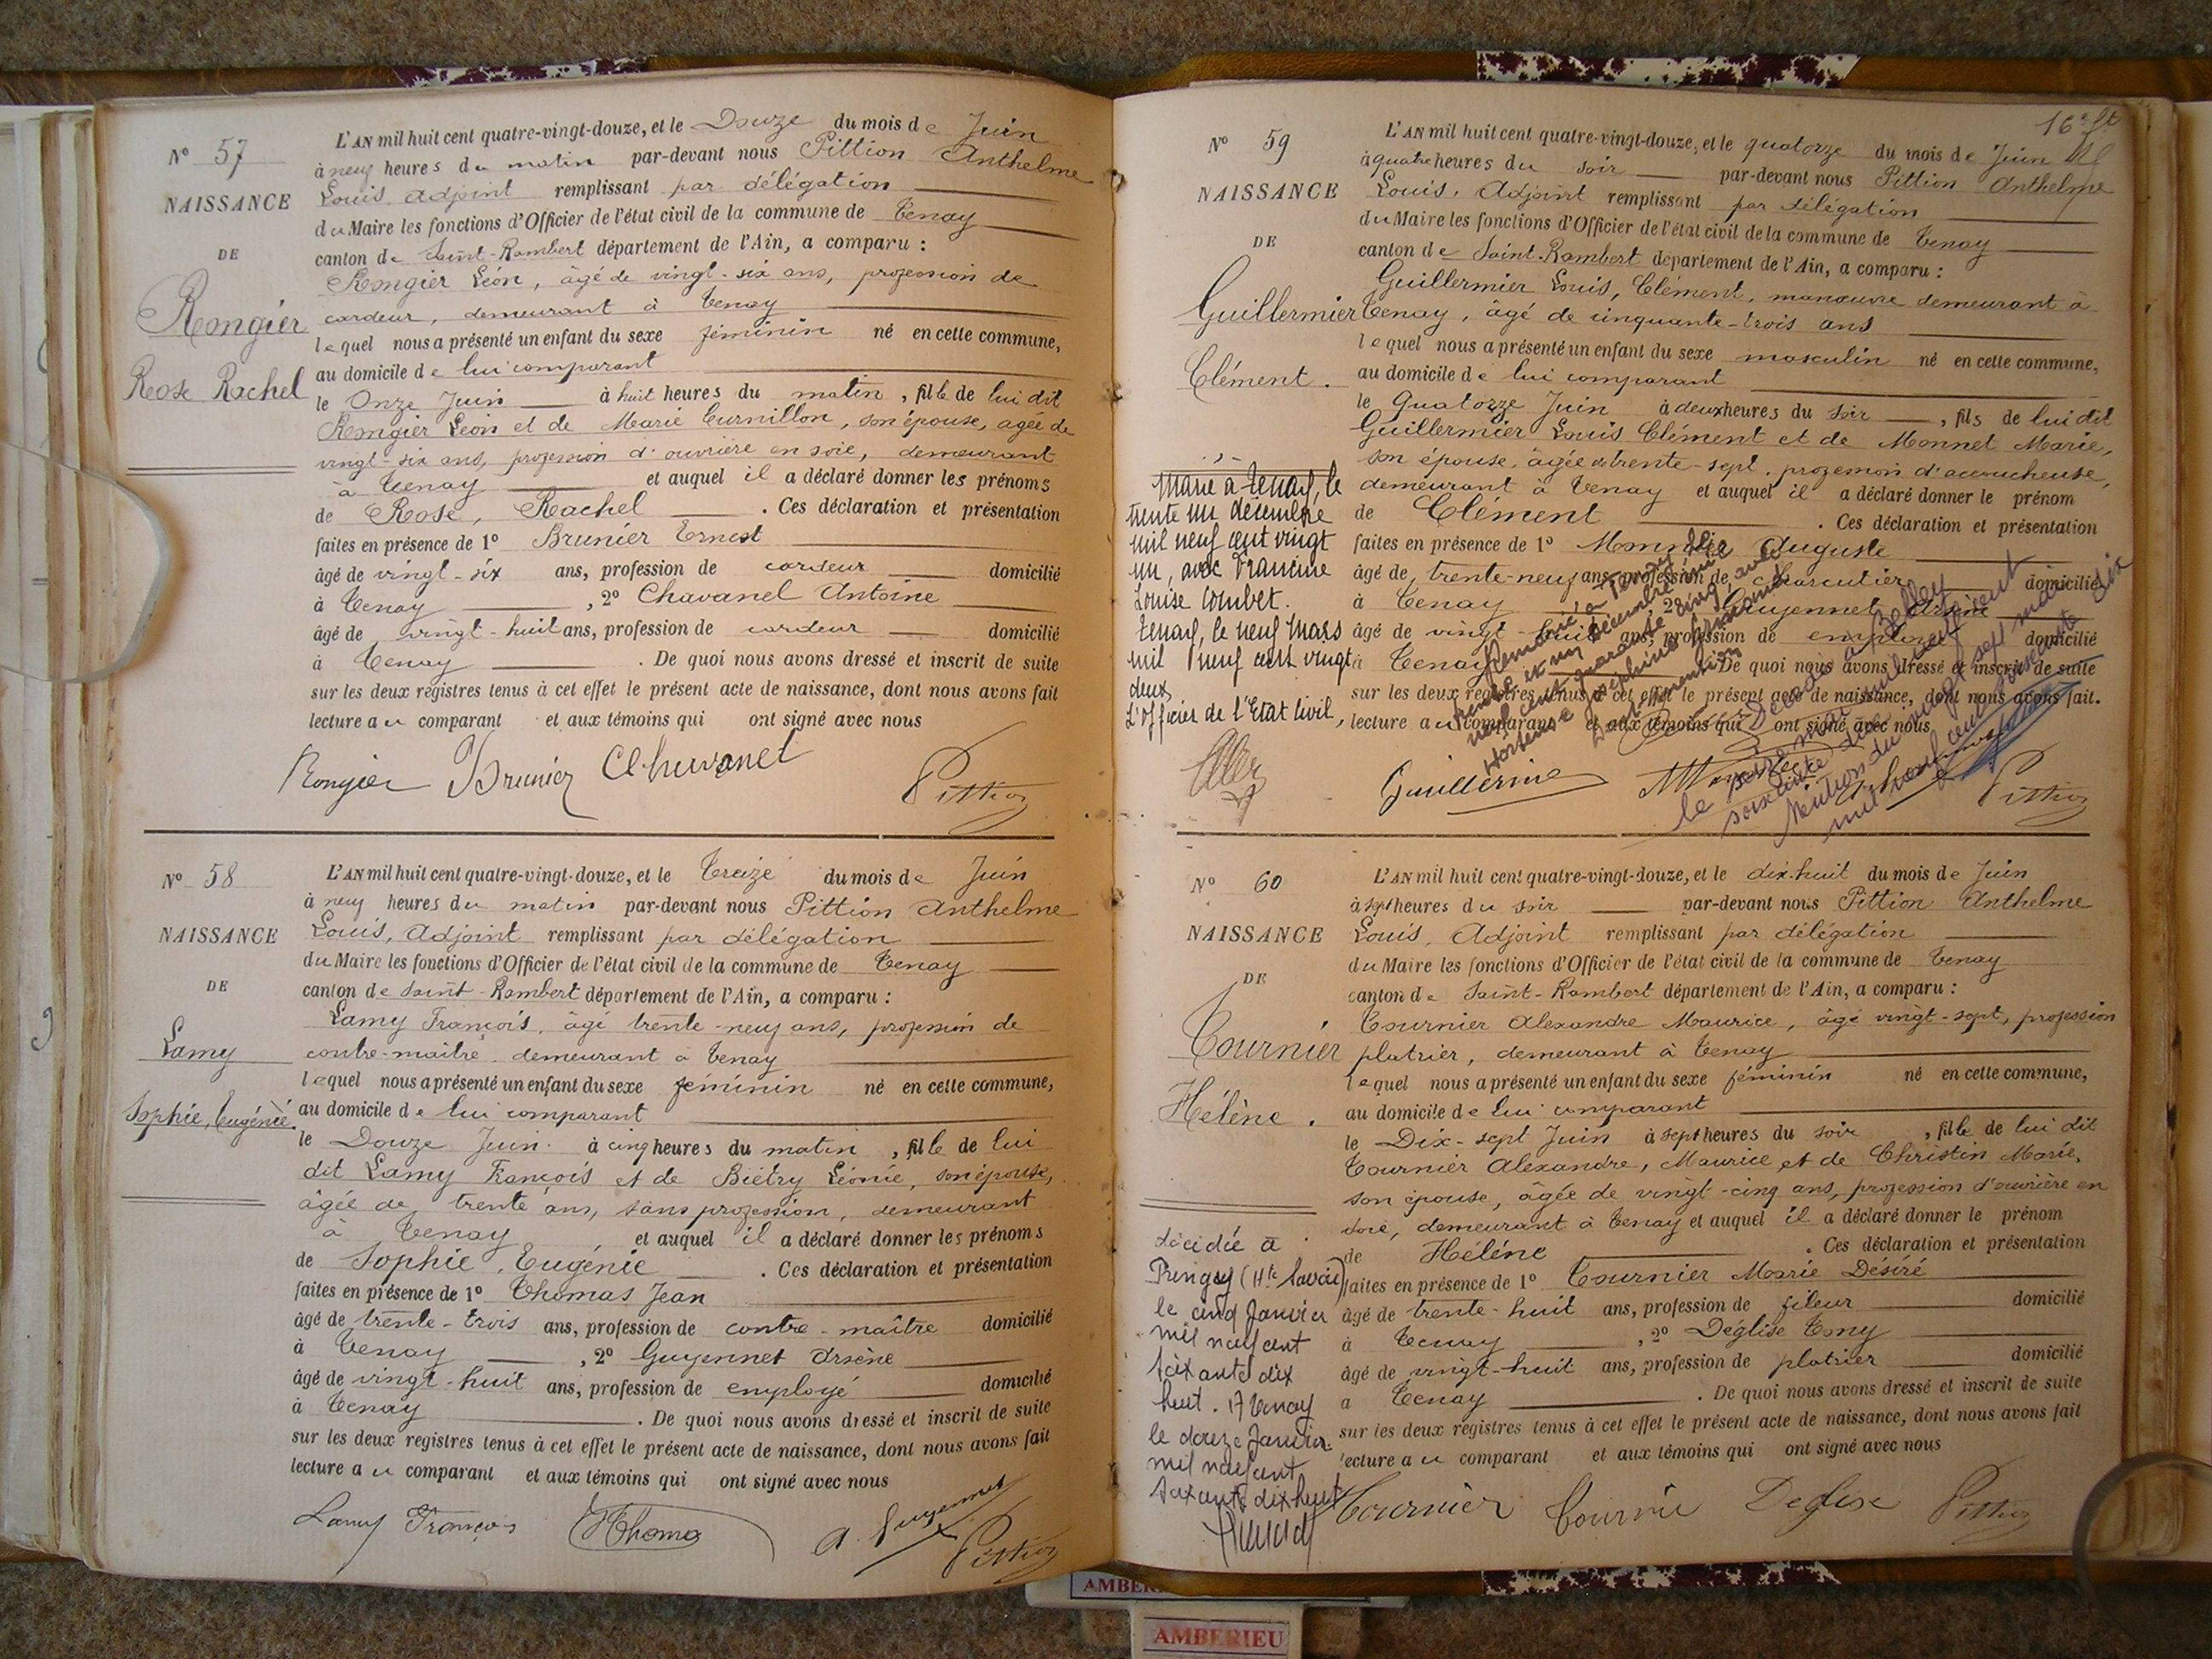 N° 57
NAISSANCE
DE
Rongier
Rose Rachel
L'AN mil huit cent quatre-vingt-douze, et le Douze du mois de Juin
à neuf heures du matin par-devant nous Pittion Anthelme
Louis, Adjoint remplissant par délégation
du Maire les fonctions d'Officier de l'état civil de la commune de Tenay
canton de Saint-Rambert département de l'Ain, a comparu :
Rongier Léon, âgé de vingt-six ans, profession de
cardeur, demeurant à Tenay
lequel nous a présenté un enfant du sexe féminin né en cette commune,
au domicile de lui comparant
le Onze Juin à huit heures du matin, fille de lui dit
Rongier Léon et de Marie Curnillon, son épouse, âgée de
vingt-six ans, profession d'ouvrière en soie, demeurant
à Tenay et auquel il a déclaré donner les prénoms
de Rose, Rachel. Ces déclaration et présentation
faites en présence de 1° Brunier Ernest
âgé de vingt-six ans, profession de cardeur domicilié
à Tenay, 2° Chavanel Antoine
âgé de vingt-huit ans, profession de cardeur domicilié
à Tenay. De quoi nous avons dressé et inscrit de suite
sur les deux registres tenus à cet effet le présent acte de naissance, dont nous avons fait
lecture au comparant et aux témoins qui ont signé avec nous
Rongier Brunier Chavanel Pittion
N° 58
NAISSANCE
DE
Lamy
Sophie, Eugénie
L'AN mil huit cent quatre-vingt-douze, et le Treize du mois de Juin
à neuf heures du matin par-devant nous Pittion Anthelme
Louis, Adjoint remplissant par délégation
du Maire les fonctions d'Officier de l'état civil de la commune de Tenay
canton de Saint-Rambert département de l'Ain, a comparu :
Lamy François, âgé trente-neuf ans, profession de
contre-maître demeurant à Tenay
lequel nous a présenté un enfant du sexe féminin né en cette commune,
au domicile de lui comparant
le Douze Juin à cinq heures du matin, fille de lui
dit Lamy François et de Biétry Léonie, son épouse,
âgée de trente ans, sans profession, demeurant
à Tenay et auquel il a déclaré donner les prénoms
de Sophie, Eugénie. Ces déclaration et présentation
faites en présence de 1° Thomas Jean
âgé de trente-trois ans, profession de contre-maître domicilié
à Tenay, 2° Guyennet Arsène
âgé de vingt-huit ans, profession de employé domicilié
à Tenay. De quoi nous avons dressé et inscrit de suite
sur les deux registres tenus à cet effet le présent acte de naissance, dont nous avons fait
lecture au comparant et aux témoins qui ont signé avec nous
Lamy François Thomas A. Guyennet Pittion
16e ft
N° 59
NAISSANCE
DE
Guillermier
Clément.
L'AN mil huit cent quatre-vingt-douze, et le quatorze du mois de Juin
à quatre heures du soir par-devant nous Pittion Anthelme
Louis, Adjoint remplissant par délégation
du Maire les fonctions d'Officier de l'état civil de la commune de Tenay
canton de Saint-Rambert département de l'Ain, a comparu :
Guillermier Louis, Clément, manœuvre demeurant à
Tenay, âgé de cinquante-trois ans
lequel nous a présenté un enfant du sexe masculin né en cette commune,
au domicile de lui comparant
le Quatorze Juin à deux heures du soir, fils de lui dit
Guillermier Louis Clément et de Monnet Marie,
son épouse, âgée de trente-sept, profession d'accoucheuse,
demeurant à Tenay et auquel il a déclaré donner le prénom
de Clément. Ces déclaration et présentation
faites en présence de 1° Auguste
âgé de trente-neuf ans, profession de charcutier domicilié
à Tenay, 2° Guyennet Arsène
âgé de vingt-huit ans, profession de employé domicilié
à Tenay. De quoi nous avons dressé et inscrit de suite
sur les deux registres tenus à cet effet le présent acte de naissance, dont nous avons fait.
lecture au comparant et aux témoins qui ont signé avec nous
Marié à Tenay, le
trente un décembre
mil neuf cent vingt
un, avec Francine
Louise Combet.
Tenay, le neuf Mars
mil neuf cent vingt
deux
L'Officier de l'Etat Civil,
Remarié à Tenay le
trente et un décembre mil
neuf cent quarante cinq avec
Hortense Joséphine
Décédé à Belley
le seize mai mil neuf cent
soixante six
Mention du
mil neuf cent soixante six
Guillermier Pittion
N° 60
NAISSANCE
DE
Tournier
Hélène.
L'AN mil huit cent quatre-vingt-douze, et le dix-huit du mois de Juin
à sept heures du soir par-devant nous Pittion Anthelme
Louis, Adjoint remplissant par délégation
du Maire les fonctions d'Officier de l'état civil de la commune de Tenay
canton de Saint-Rambert département de l'Ain, a comparu :
Tournier Alexandre Maurice, âgé vingt-sept, profession
platrier, demeurant à Tenay
lequel nous a présenté un enfant du sexe féminin né en cette commune,
au domicile de lui comparant
le Dix-sept Juin à sept heures du soir, fille de lui dit
Tournier Alexandre, Maurice et de Christin Marie,
son épouse, âgée de vingt-cinq ans, profession d'ouvrière en
soie, demeurant à Tenay et auquel il a déclaré donner le prénom
de Hélène. Ces déclaration et présentation
faites en présence de 1° Tournier Marie Désiré
âgé de trente-huit ans, profession de fileur domicilié
à Tenay, 2° Déglise Tony
âgé de vingt-huit ans, profession de platrier domicilié
à Tenay. De quoi nous avons dressé et inscrit de suite
sur les deux registres tenus à cet effet le présent acte de naissance, dont nous avons fait
lecture au comparant et aux témoins qui ont signé avec nous
décédée à
Pringy (Hte Savoie)
le cinq Janvier
mil neuf cent
soixante dix
huit. A Tenay
le douze Janvier
mil neuf cent
soixante dix huit
Tournier Tournier Deglise Pittion
AMBERIEU